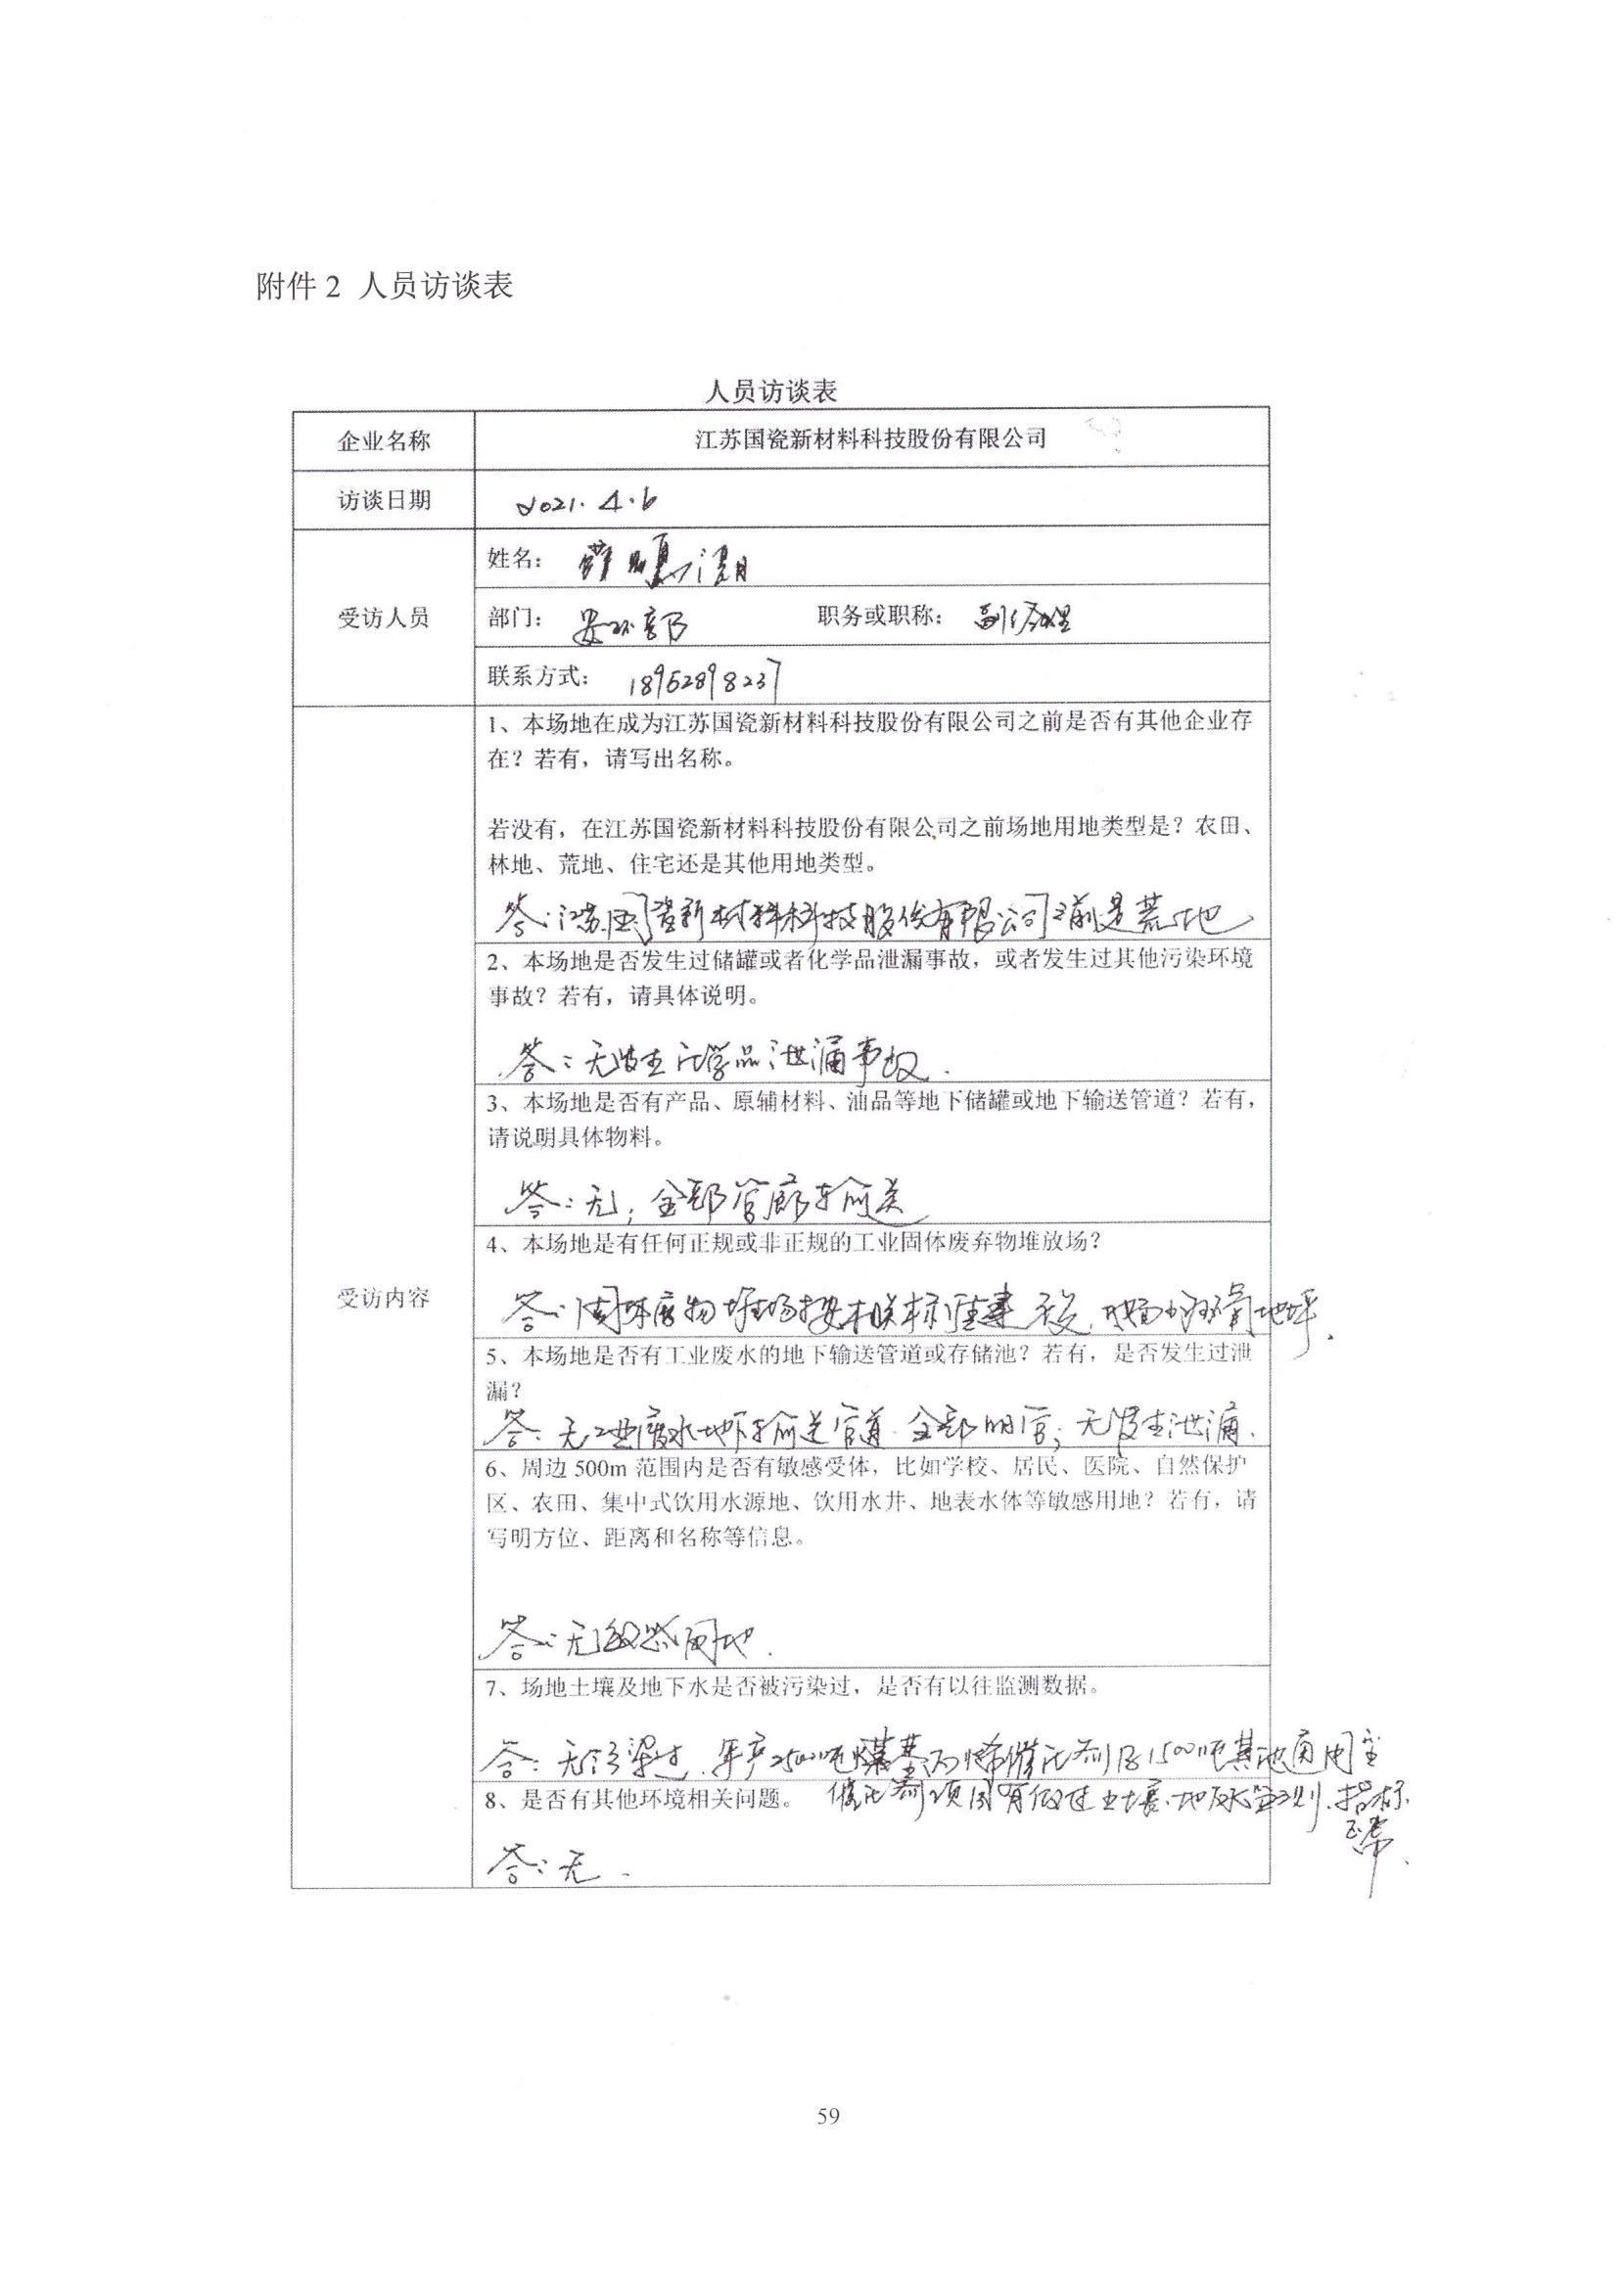 附件 2 人员访谈表
人员访谈表
企业名称
江苏国瓷新材料科技股份有限公司
访谈日期
2021.4.6
受访人员
姓名：
部门： 安环部 职务或职称： 副经理
联系方式： 18952898237
受访内容
1、本场地在成为江苏国瓷新材料科技股份有限公司之前是否有其他企业存
在？若有，请写出名称。
若没有，在江苏国瓷新材料科技股份有限公司之前场地用地类型是？农田、
林地、荒地、住宅还是其他用地类型。
答：江苏国瓷新材料科技股份有限公司之前是荒地
2、本场地是否发生过储罐或者化学品泄漏事故，或者发生过其他污染环境
事故？若有，请具体说明。
答：无发生化学品泄漏事故．
3、本场地是否有产品、原辅材料、油品等地下储罐或地下输送管道？若有，
请说明具体物料。
答：无；全部管廊输送
4、本场地是有任何正规或非正规的工业固体废弃物堆放场？
答：固体废物堆场按相关标准建设，地面为环氧地坪．
5、本场地是否有工业废水的地下输送管道或存储池？若有，是否发生过泄
漏？
答：无工业废水地下输送管道．全部明管；无发生泄漏．
6、周边 500m 范围内是否有敏感受体，比如学校、居民、医院、自然保护
区、农田、集中式饮用水源地、饮用水井、地表水体等敏感用地？若有，请
写明方位、距离和名称等信息。
答：无敏感用地．
7、场地土壤及地下水是否被污染过，是否有以往监测数据。
答：无污染过．年产2500吨煤基丙烯催化剂及1500吨其他通用型
催化剂项目有做过土壤、地下水监测．指标
正常．
8、是否有其他环境相关问题。
答：无．
59